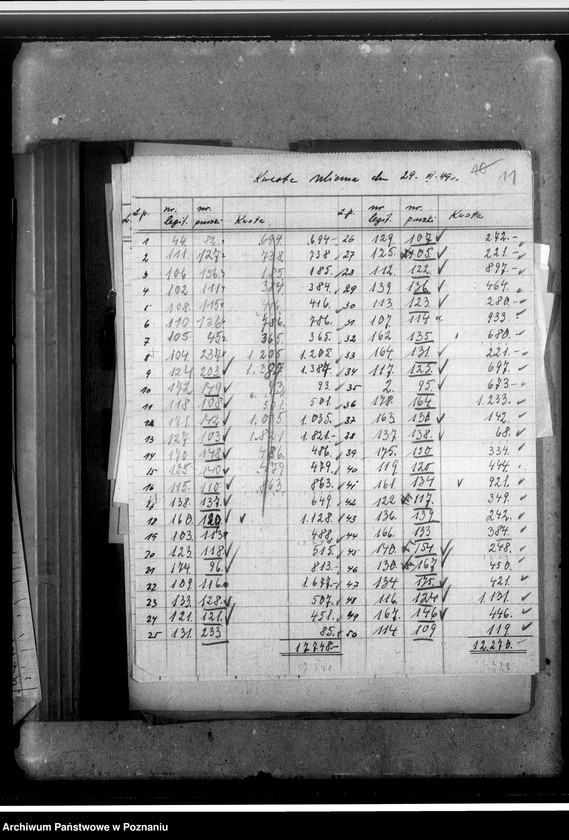 Kwesta uliczna dn 29. VI. 49 r.
40 11
L.p. nr. legit. nr. puszki Kwota L.p. nr. legit. nr. puszki Kwota
1 44 82 694 694.- 26 129 107 272.-
2 111 127 738 738 27 125 105 221.-
3 106 156 185 185. 28 112 122 897.-
4 102 111 384 384. 29 139 136 464.
5 108 115 416 416. 30 113 123 280.-
6 110 126 786. 786. 31 107 114 933.
7 105 45 365. 365. 32 162 135 680.-
8 104 234 1.205 1.205. 33 164 131 221.-
9 124 203 1.387 1.387. 34 117 125 697.
10 172 149 93 93. 35 2. 95 673.-
11 118 108 501. 501. 36 178. 164 1.233.-
12 142 1.035 1.035. 37 163 142.
13 127 103 1.821 1.821.- 38 137 138. 68.
14 170 148 486. 486. 39 175. 130 334.
15 135 140 479 479. 40 119 120 444.
16 115. 110 863. 863. 41 161. 134 921.
17 138. 137 649. 42 122 117. 349.
18 160. 120 1.128. 43 136. 139 242.
19 103. 113 488. 44 166. 133 384.
20 123. 118 515. 45 140. 154 248.
21 174. 96 813.- 46 130. 167 450.
22 109 116 1.677.- 47 134 175 421.
23 133. 128. 507. 48 116 124 1.101.
24 121. 121. 451. 49 167. 146 446.
25 131. 233 85. 50 114 109 119
17748.- 12.270.-
Archiwum Państwowe w Poznaniu